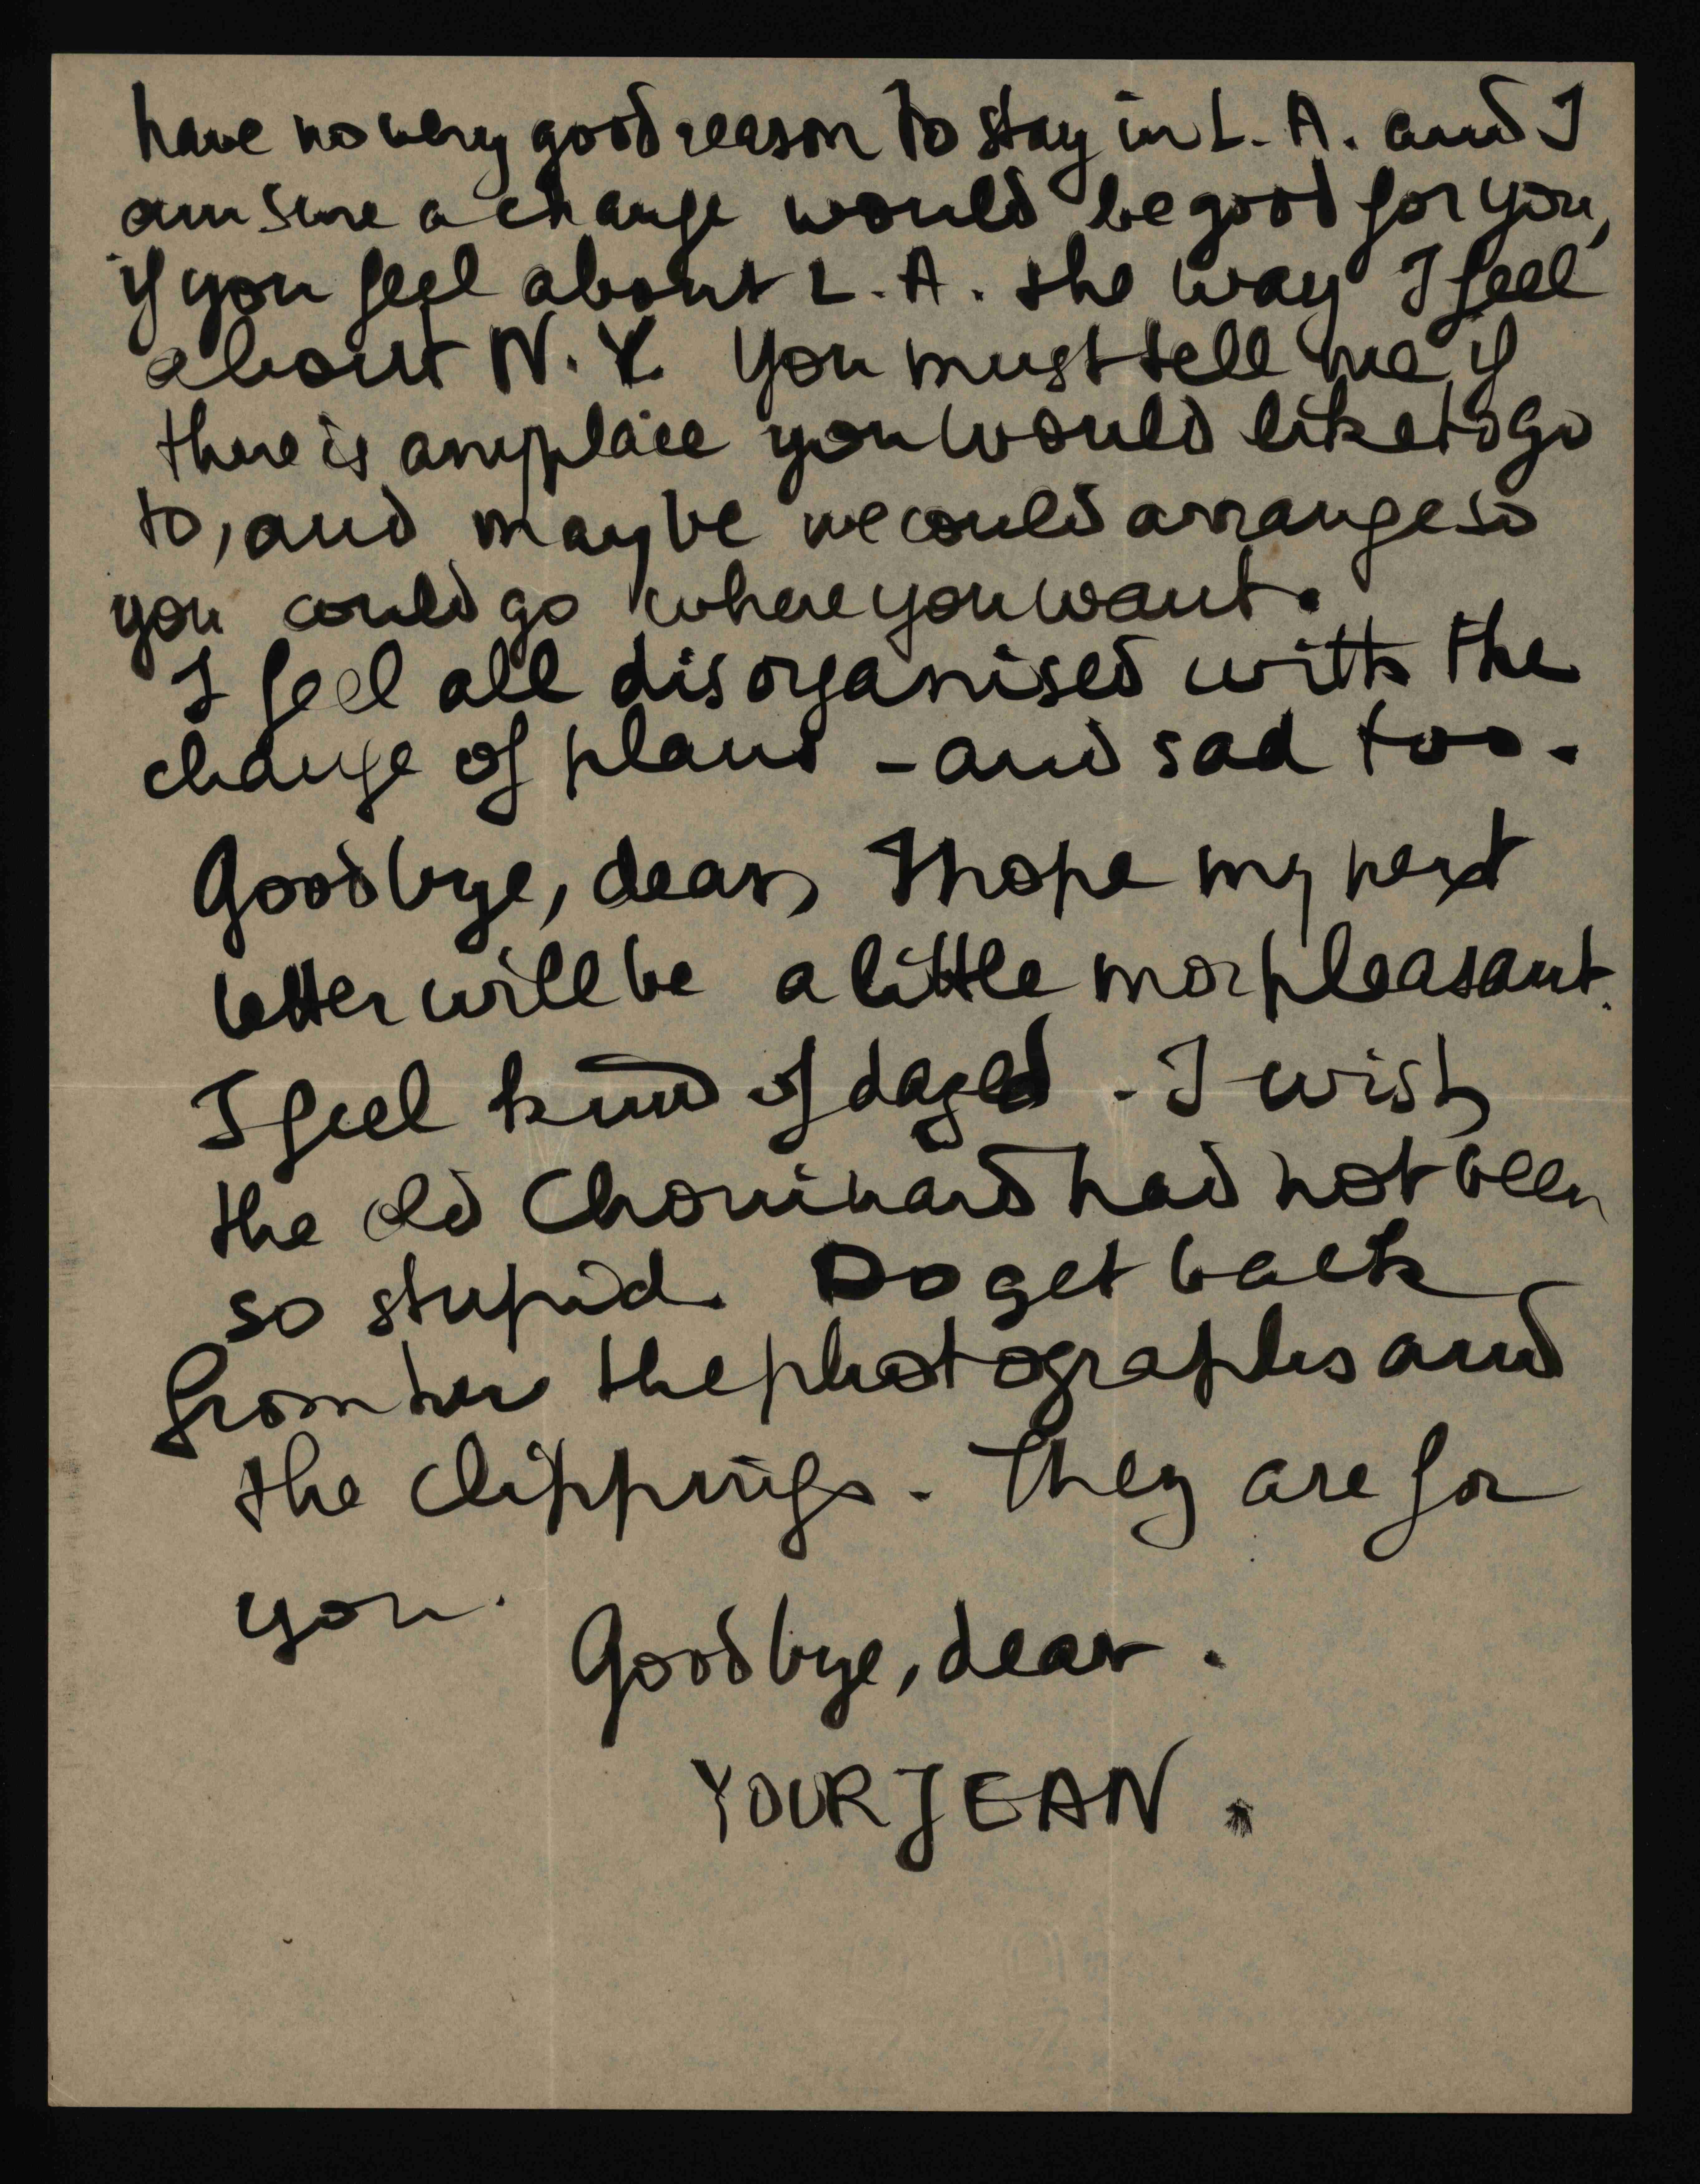 have no very good reason to stay in L. A. and I
am sure a change would be good for you,
if you feel about L. A. the way I feel
about N. Y. You must tell me if
there is anyplace you would like to go
to, and maybe we could arrange so
you could go where you want.
I feel all disorganised with the
change of plans - and sad too.
Goodbye, dear, I hope my next
letter will be a little mor pleasant.
I feel kind of dazed - I wish
the old Chouinard had not been
so stupid. Do get back
from her the photographs and
the clippings. They are for
you.
Goodbye, dear.
YOUR JEAN.